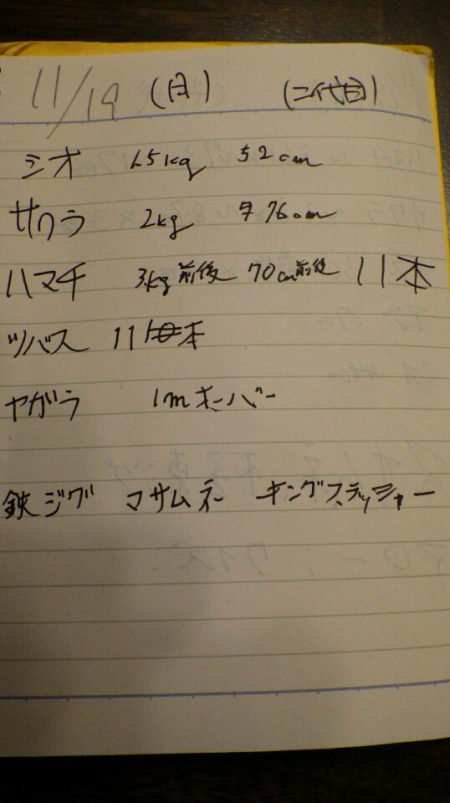 11/19 (月) (二代目)
シオ 1.5kg 52cm
サワラ 2kg 76cm
ハマチ 3kg前後 70cm前後 11本
ツバス 11本
ヤガラ 1mオーバー
鉄ジグ マサムネ キングスラッシャー